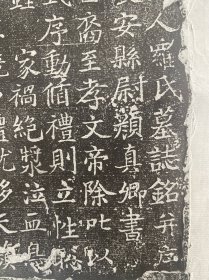 人羅氏墓誌銘并序
安縣尉顏真卿書
裔至孝文帝除叱以
式序動循禮則立性聡
家禍絕漿泣血